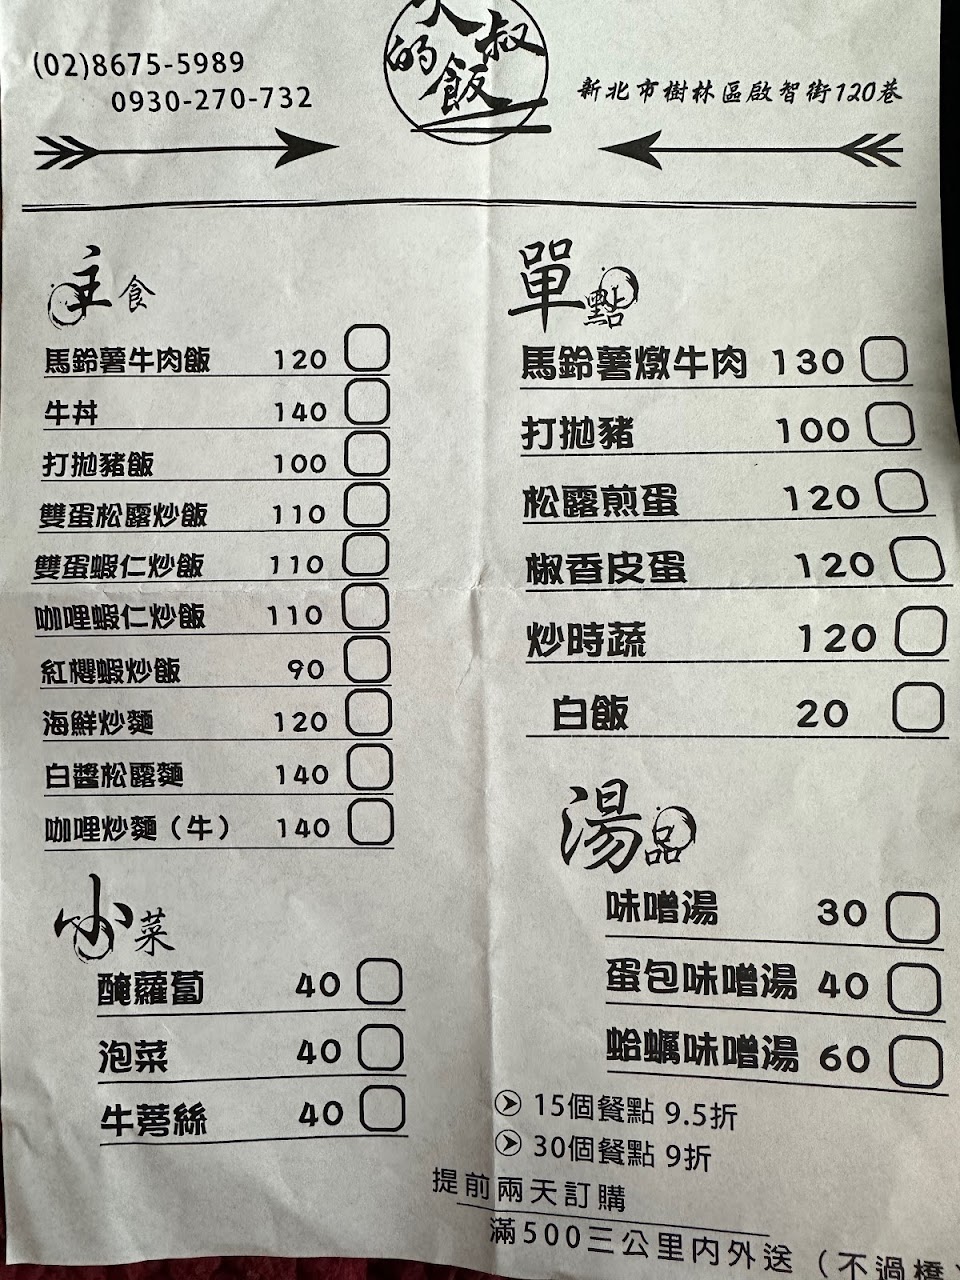 (02)8675-5989
0930-270-732
叔
的飯
新北市樹林區啟智街120巷
主食
馬鈴薯牛肉飯 120
牛丼 140
打拋豬飯 100
雙蛋松露炒飯 110
雙蛋蝦仁炒飯 110
咖哩蝦仁炒飯 110
紅櫻蝦炒飯 90
海鮮炒麵 120
白醬松露麵 140
咖哩炒麵（牛） 140
小菜
醃蘿蔔 40
泡菜 40
牛蒡絲 40
單點
馬鈴薯燉牛肉 130
打拋豬 100
松露煎蛋 120
椒香皮蛋 120
炒時蔬 120
白飯 20
湯品
味噌湯 30
蛋包味噌湯 40
蛤蠣味噌湯 60
15個餐點 9.5折
30個餐點 9折
提前兩天訂購
滿500三公里內外送（不過橋）